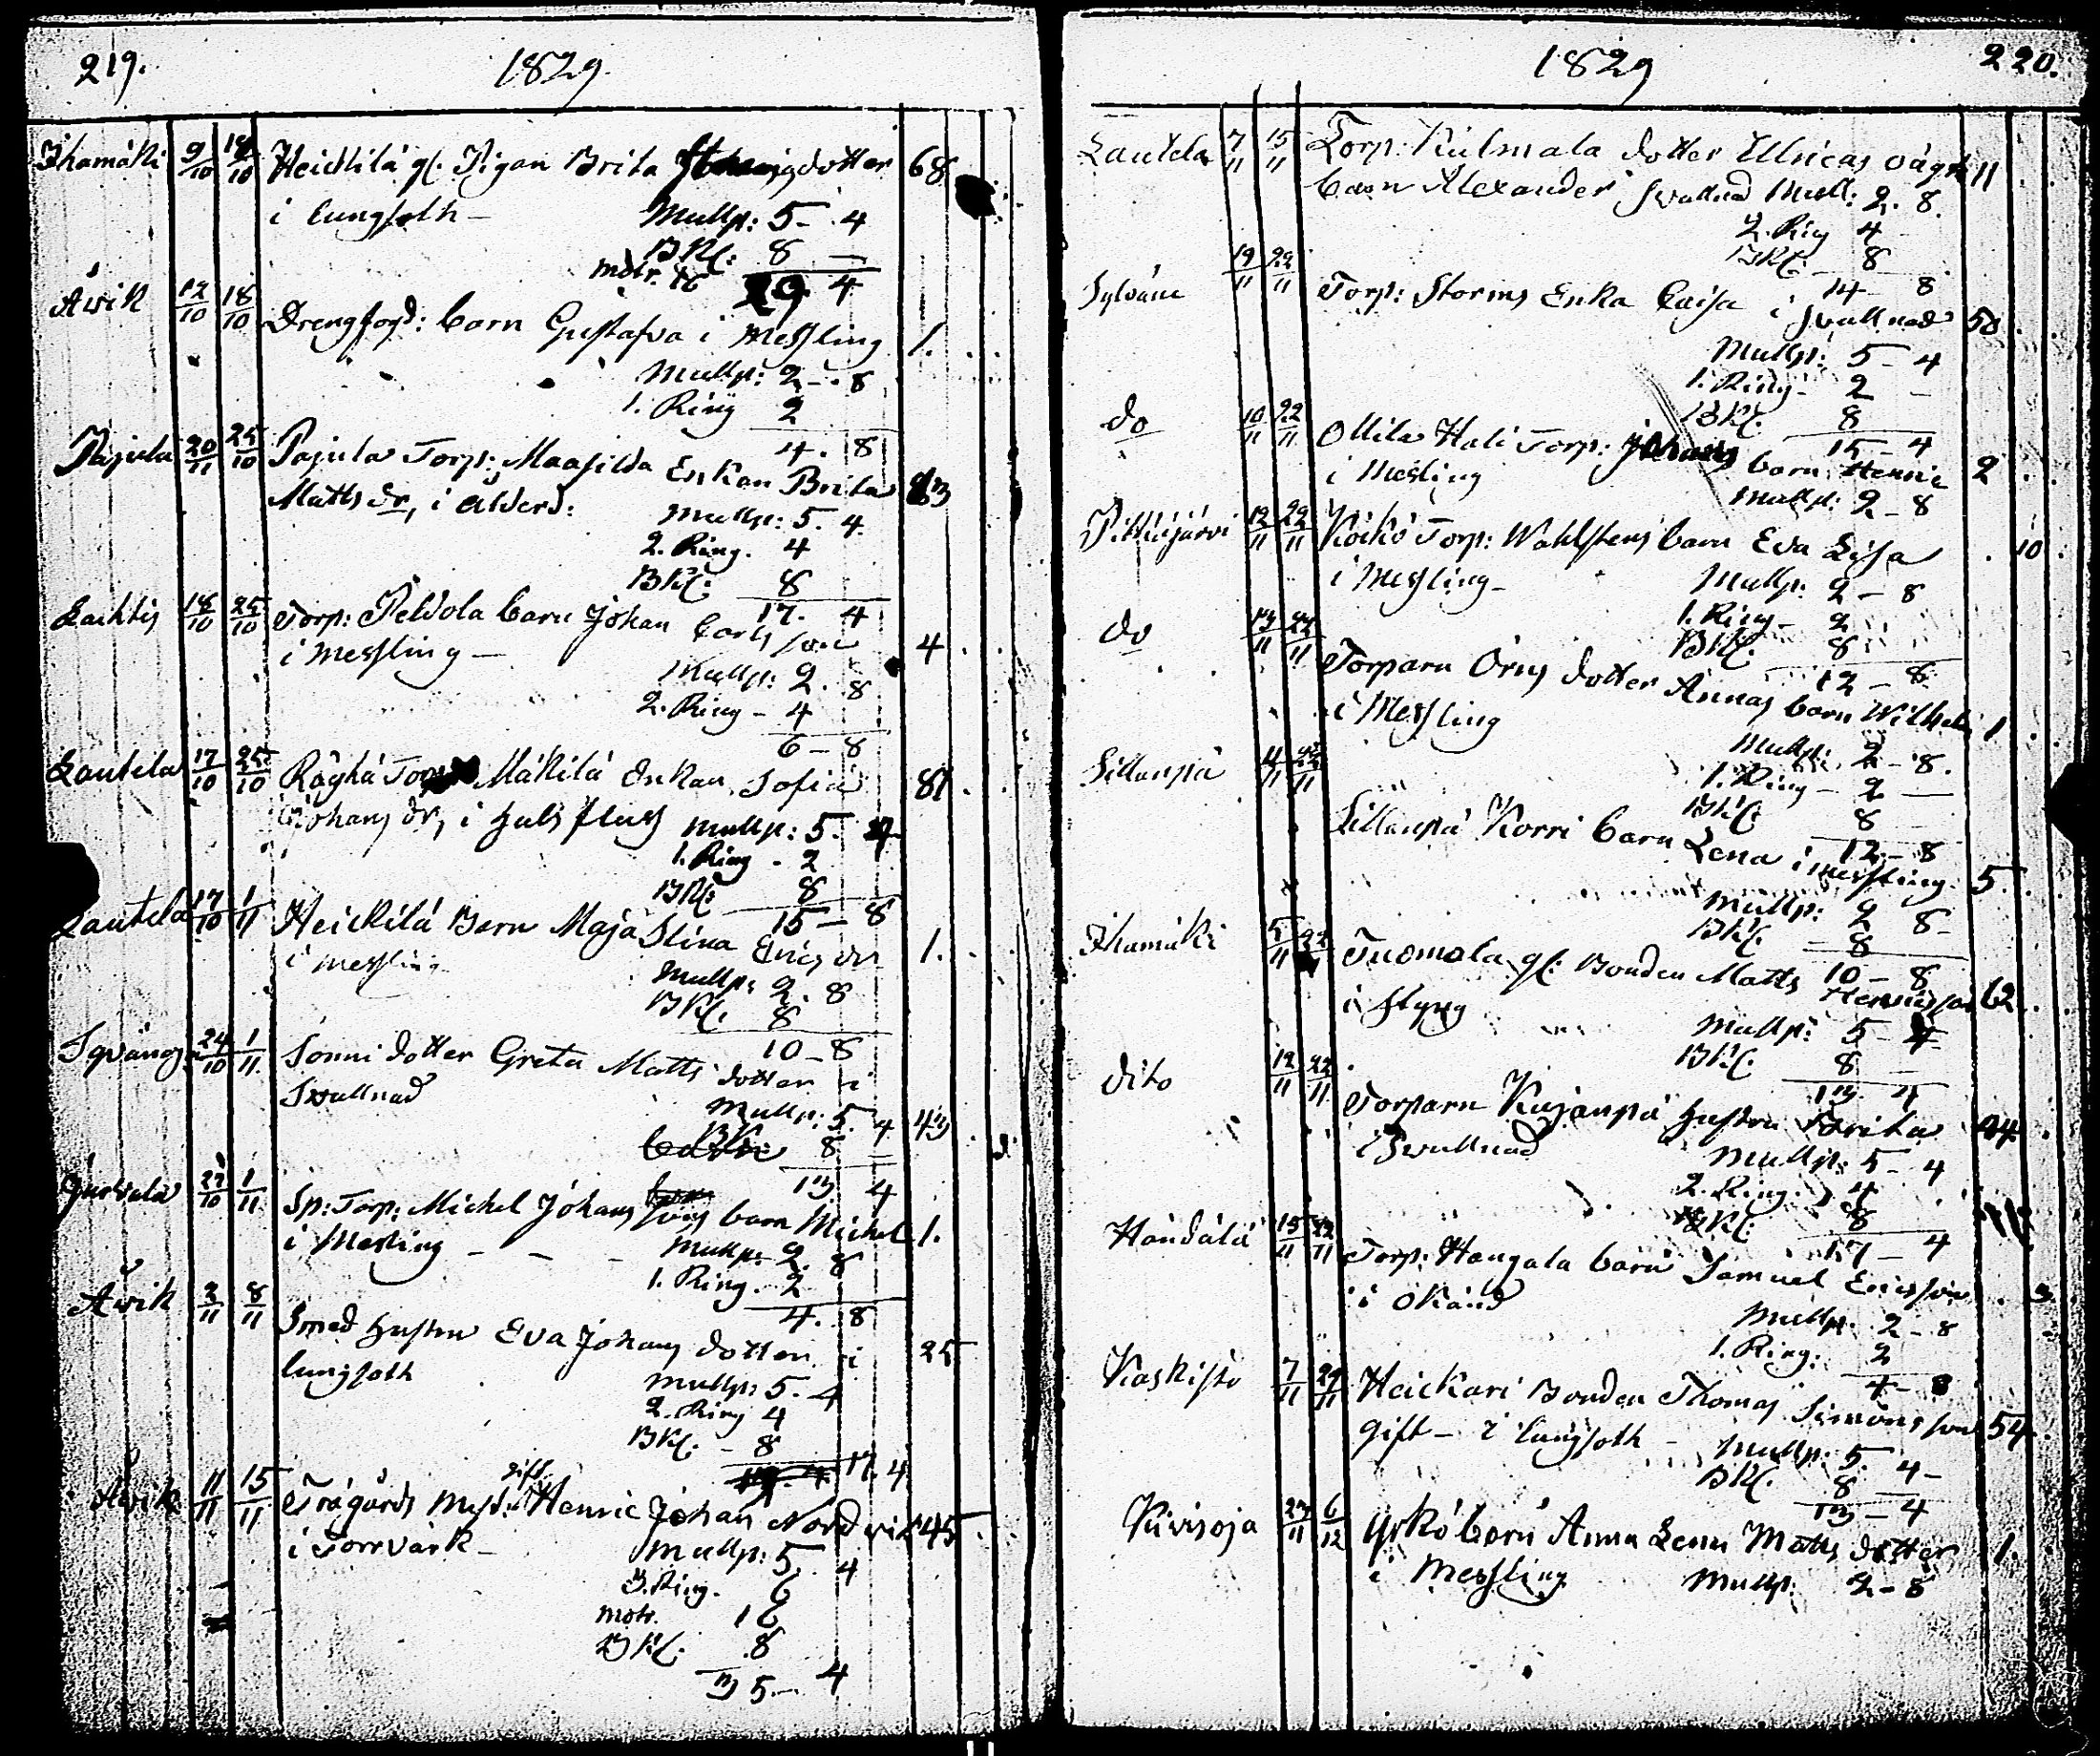 219. 1829.
Ihamäki 9/10 18/10 Heickilä gl. Pigan Brita dotter 68
i lungsoth – Mullp: 5 - 4
BKl: 8 –
motr. 16
29. 4
Åvik 12/10 18/10 Drengfogd: barn Gustafva i Messling 1.
Mullp: 2 - 8
1. Ring 2
4. 8
Pajula 20/11 25/10 Pajula Torp: Maasilda Enkan Brita 83
Matts dr, i Ålderd: Mullp: 5. 4.
2. Ring. 4
BKl: 8
17. 4
Lachtis 18/10 25/10 Torp: Peldola barn Johan Carls son 4
i Messling – Mullp: 2. 8
2. Ring – 4
6 – 8
Lautela 17/10 25/10 Råghä Torp Mäkilä Enkan Sofia 81.
Johans dr, i halsfluss Mullp: 5. 4
1. Ring - 2
BKl: 8
15 – 8
Lautela 17/10 1/11 Heickilä Barn Maja Stina Erics dr 1.
i messling Mullp: 2. 8
BKl. 8
10 – 8
24/10 1/11 Sonni dotter Greta Matts dotter i
Svullnad Mullp: 5. 4 43
BKl: 8 –
13 4
22/10 1/11 Sp: Torp: Michel Johans sons barn Michel 1.
i Mesling – – – Mullp: 2. 8
1. Ring. 2
4. 8
Åvik 3/11 8/11 Smed hustru Eva Johans dotter i 25
lungsoth Mullp: 5. 4
2. Ring 4
BKl. – 8
17. 4
Åvik 11/11 15/11 Trägårds Mäst: gift Henric Johan Nordvik 45.
i Torrvärk – Mullp: 5. 4
3. Ring. 6
motr. 16
BKl: 8
35. – 4
1829 220.
Lautela 7/11 15/11 Torp: Kulmala dotter Ullricas oägta 11
barn Alexander Svullnad Mull: 2. 8.
2. Ring 4
BKl: – 8
14 – 8
19/11 22/11 Torp: Storms Enka Caisa i Svullnad 50.
Mullp: 5 – 4
1. Ring – 2 –
BKl. 8
15 – 4
do 10/11 22/11 Ollila Hali Torp: Johans barn Henric 2
i Mesling Mullp: 2 – 8
Pittkäjärvi 12/11 22/11 Köikö Torp: Wahlstens barn Eva Lisa . 10.
i Messling – Mullp: 2 – 8
1. Ring – 2
BKl. 8
12 – 8
do 13/11 22/11 Torparn Örns dotter Annas barn Wilhelm 1
i Messling Mullp: 2 – 8.
1. Ring – 2 –
BKl: 8
12 – 8
Sillanpä 11/11 22/11 Sillanpä Korri barn Lena i messling 5.
Mullp: 2 8 –
BKl. – 8
10 – 8
Ihamäki 5/11 22/11 Tuomola gl: Bonden Matts Henrics son 62.
i styng Mullp: 5 – 4
BKl. 8
13 4
dito 12/11 22/11 Torparn Kujanpä hustru Brita 44.
i Svullnad Mullp: 5 – 4
2. Ring. 4
BKl: 8
17 – 4
Händälä 15/11 22/11 Torp: Hangala barn Samuel Ericsson . 3.
i okänd Mullp. 2 – 8
1. Ring: 2
4 – 8
Kaskisto 7/11 29/11 Heickari Bonden Thomas Simons son 54.
gift – i lungsoth – Mullp: 5. 4 –
BKl. 8
13 – 4
Kivisoja 23/11 6/12 Yrkö barn Anna Lena Matts dotter 1.
i Messling Mullp: 2 – 8